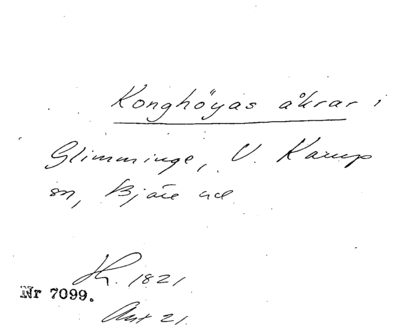 Konghöyas åkrar i
Glimminge, V. Karup
sn, Bjäre hd
1821
Nr 7099.
21.